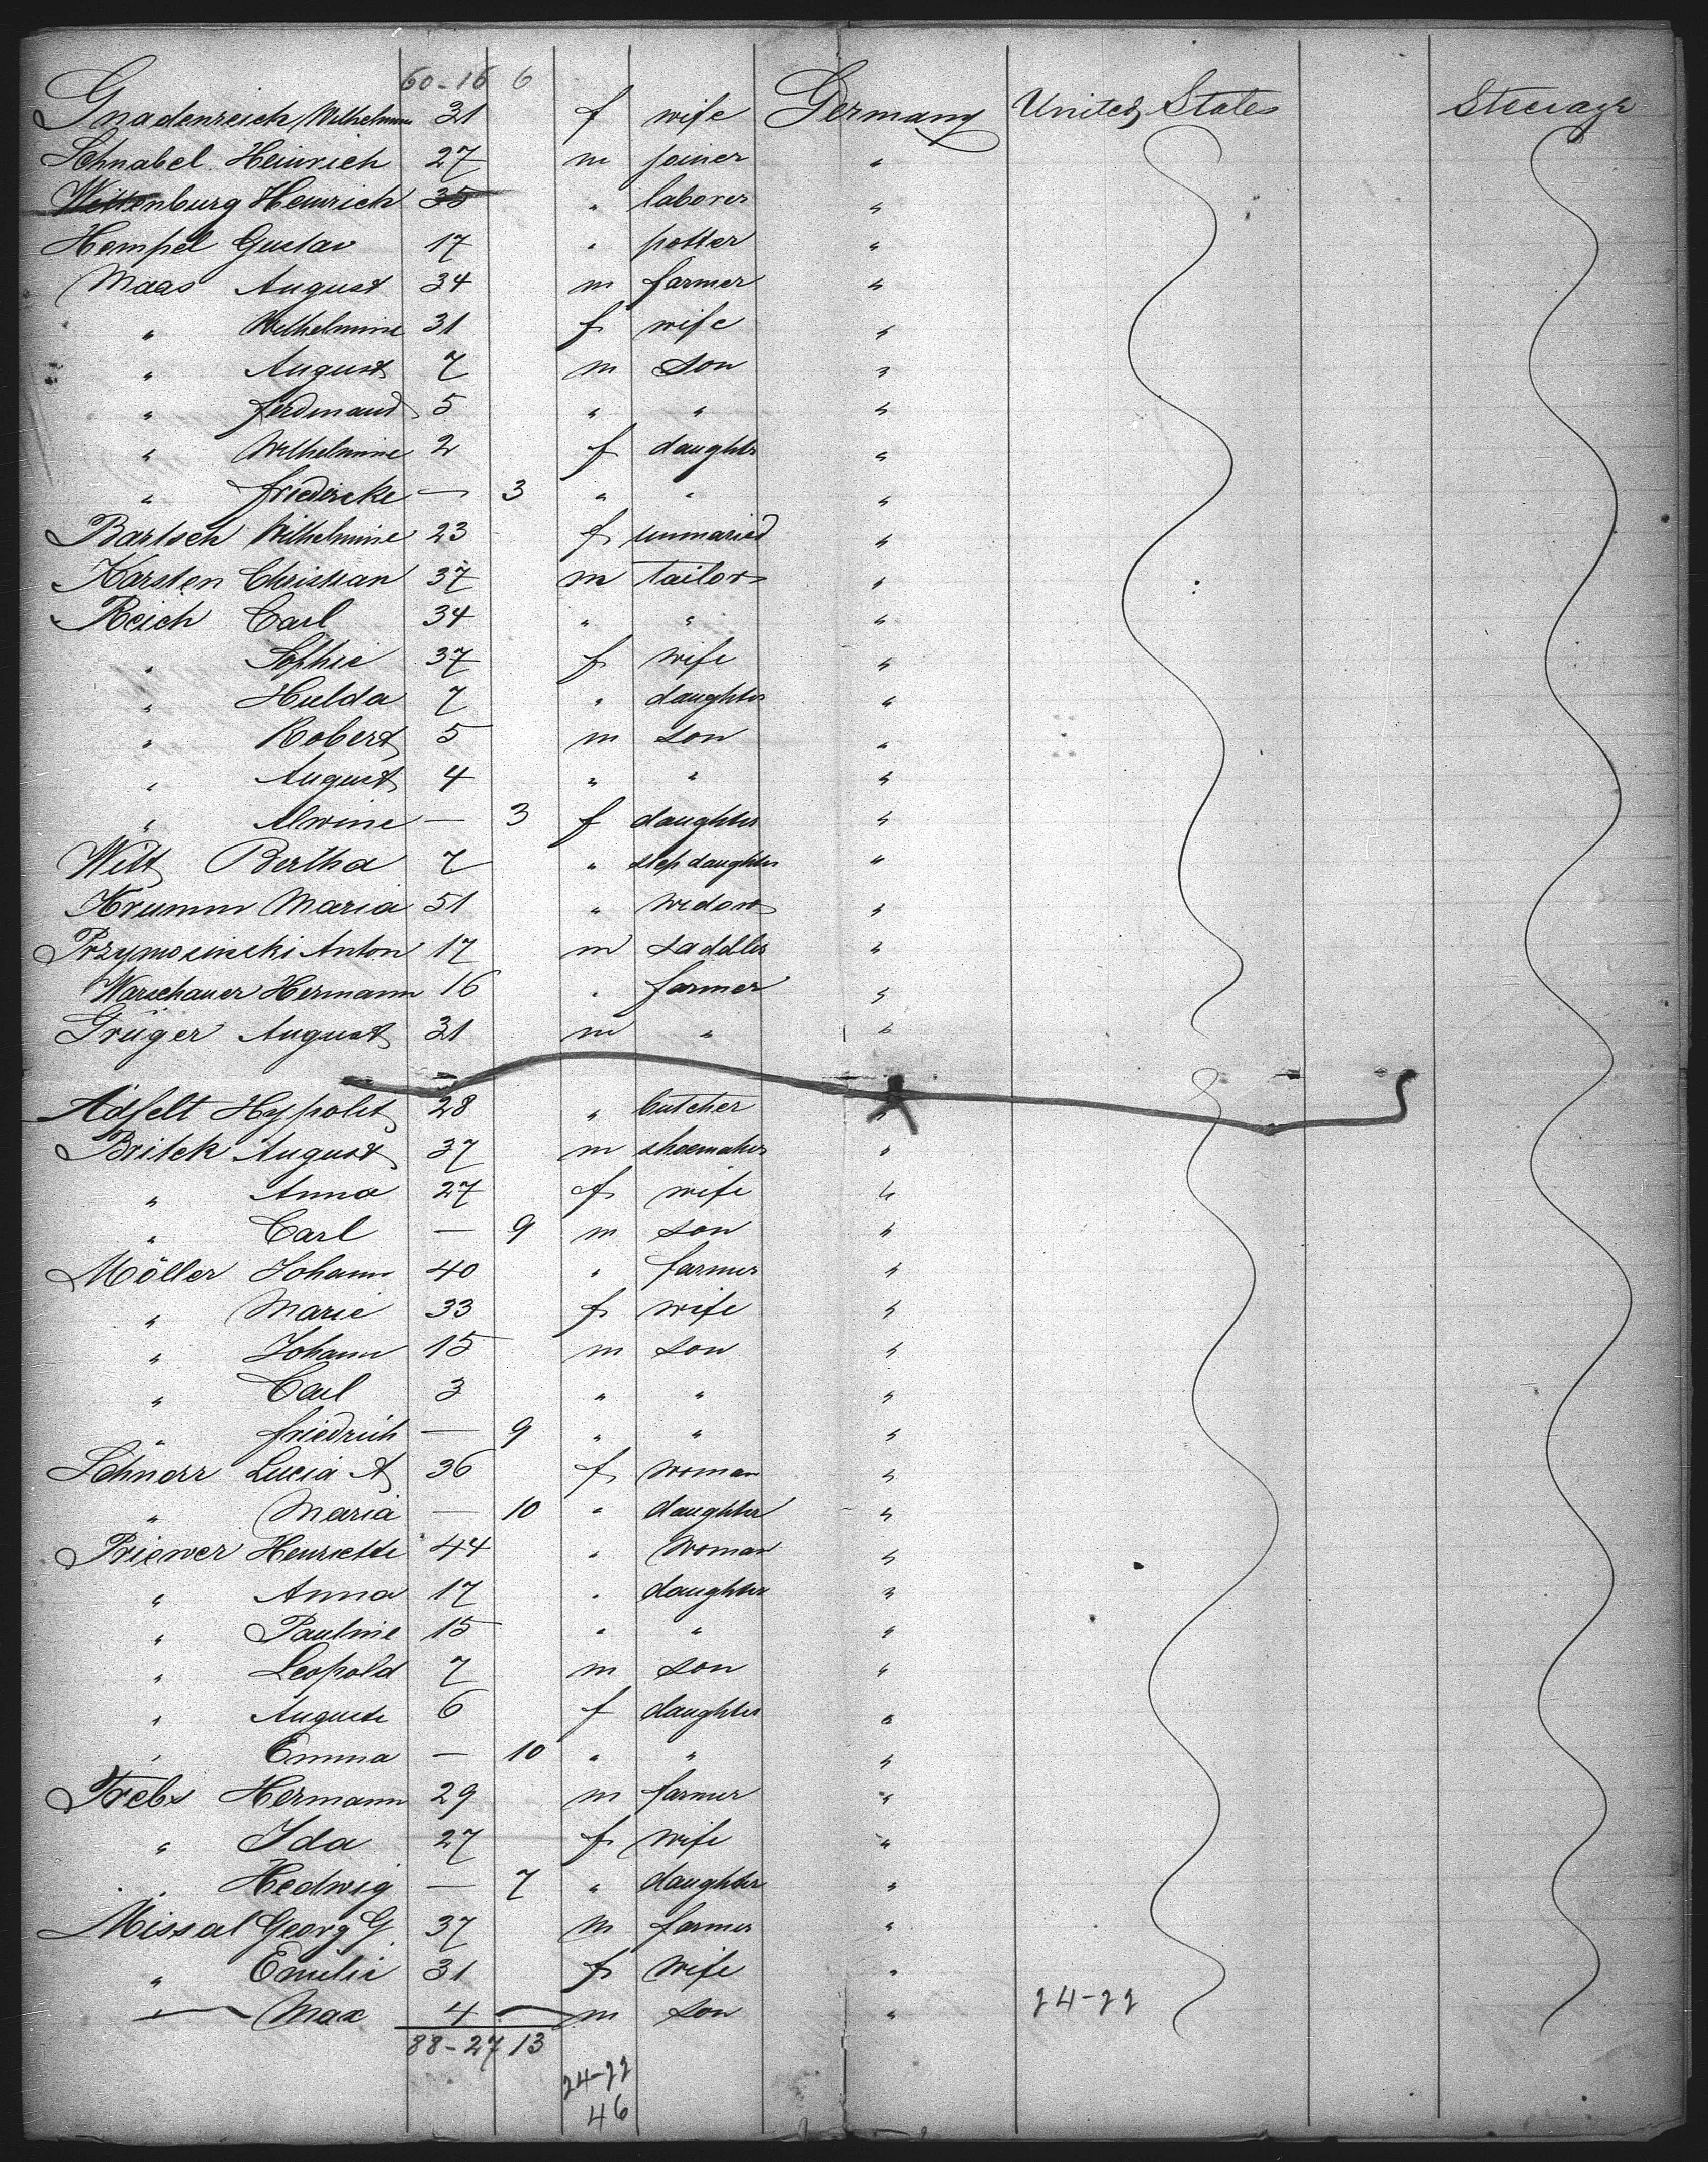 60-16 6
Gnadenreich Wilhelmine 31 f wife Germany United States Steerage
Schnabel Heinrich 27 m joiner "
Wittenburg Heinrich 35 " laborer "
Hempel Gustav 17 " potter "
Maas August 34 m farmer "
" Wilhelmine 31 f wife "
" August 7 m son "
" Ferdinand 5 " " "
" Wilhelmine 2 f daughter "
" Friedericke — 3 " " "
Bartsch Wilhelmine 23 f unmaried "
Karsten Christian 37 m tailor "
Reich Carl 34 " " "
" Sophie 37 f wife "
" Hulda 7 " daughter "
" Robert 5 m son "
" August 4 " " "
" Alwine — 3 f daughter "
Witt Bertha 7 " step daughter "
Krumm Maria 51 " widow "
Anton 17 m saddler "
Warschauer Hermann 16 " farmer "
Grüger August 31 m " "
Adfelt Hypolit 28 " butcher "
Britck August 37 m shoemaker "
" Anna 27 f wife "
" Carl — 9 m son "
Möller Johann 40 " farmer "
" Marie 33 f wife "
" Johann 15 m son "
" Carl 3 " " "
" Friedrich — 9 " " "
Schnorr Lucia A 36 f woman "
" Maria — 10 " daughter "
Priewer Henriette 44 " woman "
" Anna 17 " daughter "
" Pauline 15 " " "
" Leopold 7 m son "
" Auguste 6 f daughter "
" Emma — 10 " " "
Trebs Hermann 29 m farmer "
" Ida 27 f wife "
" Hedwig — 7 " daughter "
Missal Georg G. 37 m farmer "
" Emilie 31 f wife "
— Max 4 — m son " 24-22
88-27 13
24-22
46